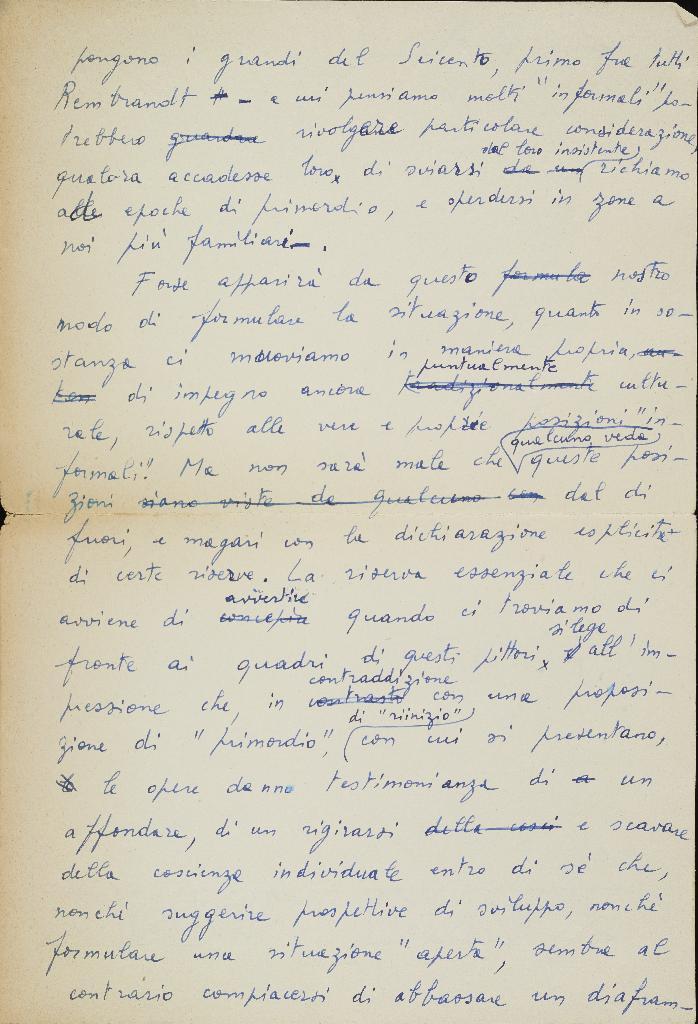 pongono i grandi del Seicento, primo fra tutti
Rembrandt - a cui pensiamo molti "informali" po-
trebbero guardare rivolgere particolare considerazione,
dal loro insistente
qualora accadesse loro, di sviarsi da un richiamo
alle epoche di primordio, e sperdersi in zone a
noi più familiari.
Forse apparirà da questo formula nostro
modo di formulare la situazione, quanto in so-
stanza ci muoviamo in maniera propria, an-
puntualmente
di impegno ancora tradizionalmente cultu-
rale, rispetto alle vere e proprie posizioni "in-
qualcuno veda
formali". Ma non sarà male che queste posi-
zioni siano viste da qualcuno con dal di
fuori, e magari con la dichiarazione esplicita
di certe riserve. La riserva essenziale che ci
avvertire
avviene di concepire quando ci troviamo di
si lega
fronte ai quadri di questi pittori, all'im-
contraddizione
pressione che, in contrasto con una proposi-
di "riinizio"
zione di "primordio", con cui si presentano,
le opere danno testimonianza di a un
affondare, di un rigirarsi della cosci e scavare
della coscienza individuale entro di sé che,
nonché suggerire prospettive di sviluppo, nonché
formulare una situazione "aperta", sembra al
contrario compiacersi di abbassare un diafram-